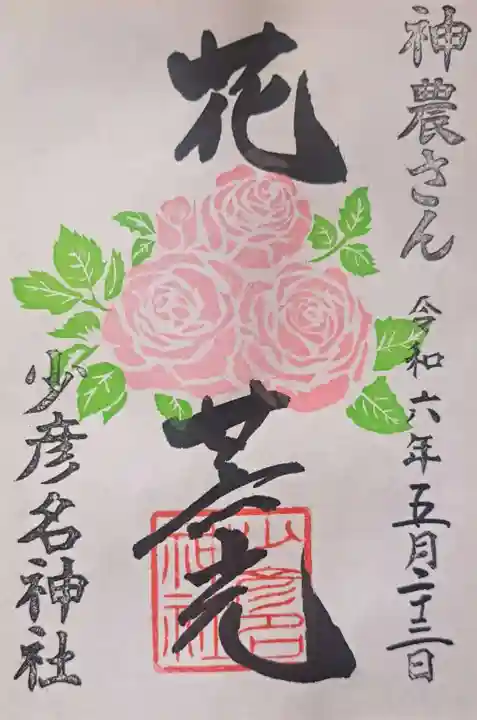 神農さん
令和六年五月二十三日
花
少彦名神社
少彦名
神社